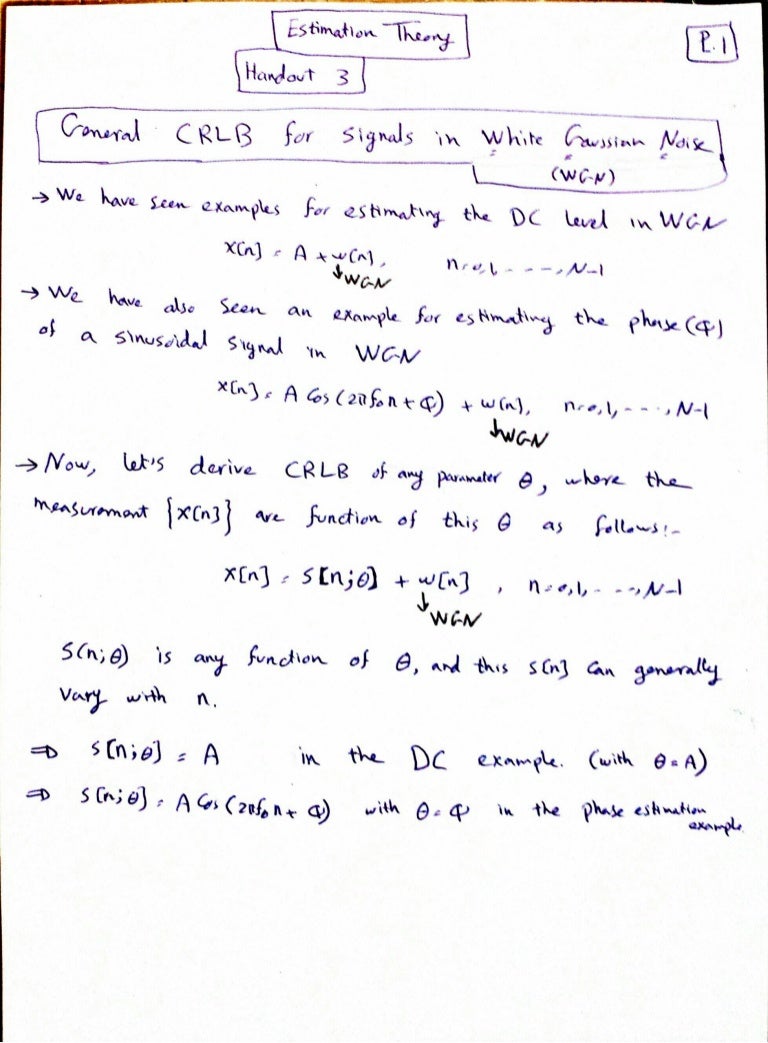 Estimation Theory
P.1
Handout 3
General CRLB for signals in White Gaussian Noise
(WGN)
→ We have seen examples for estimating the DC level in WGN
x[n] = A + w[n], n=0,1,-----,N-1
↓WGN
→ We have also seen an example for estimating the phase (φ)
of a sinusoidal signal in WGN
x[n] = A Cos(2πf₀n + φ) + w[n], n=0,1,----,N-1
↓WGN
→ Now, let's derive CRLB of any parameter θ, where the
measurement {x[n]} are function of this θ as follows:-
x[n] = s[n;θ] + w[n] , n=0,1,----,N-1
↓
WGN
S(n;θ) is any function of θ, and this s[n] can generally
vary with n.
⇒ s[n;θ] = A in the DC example. (with θ=A)
⇒ s[n;θ] = A Cos(2πf₀n + φ) with θ=φ in the phase estimation
example.